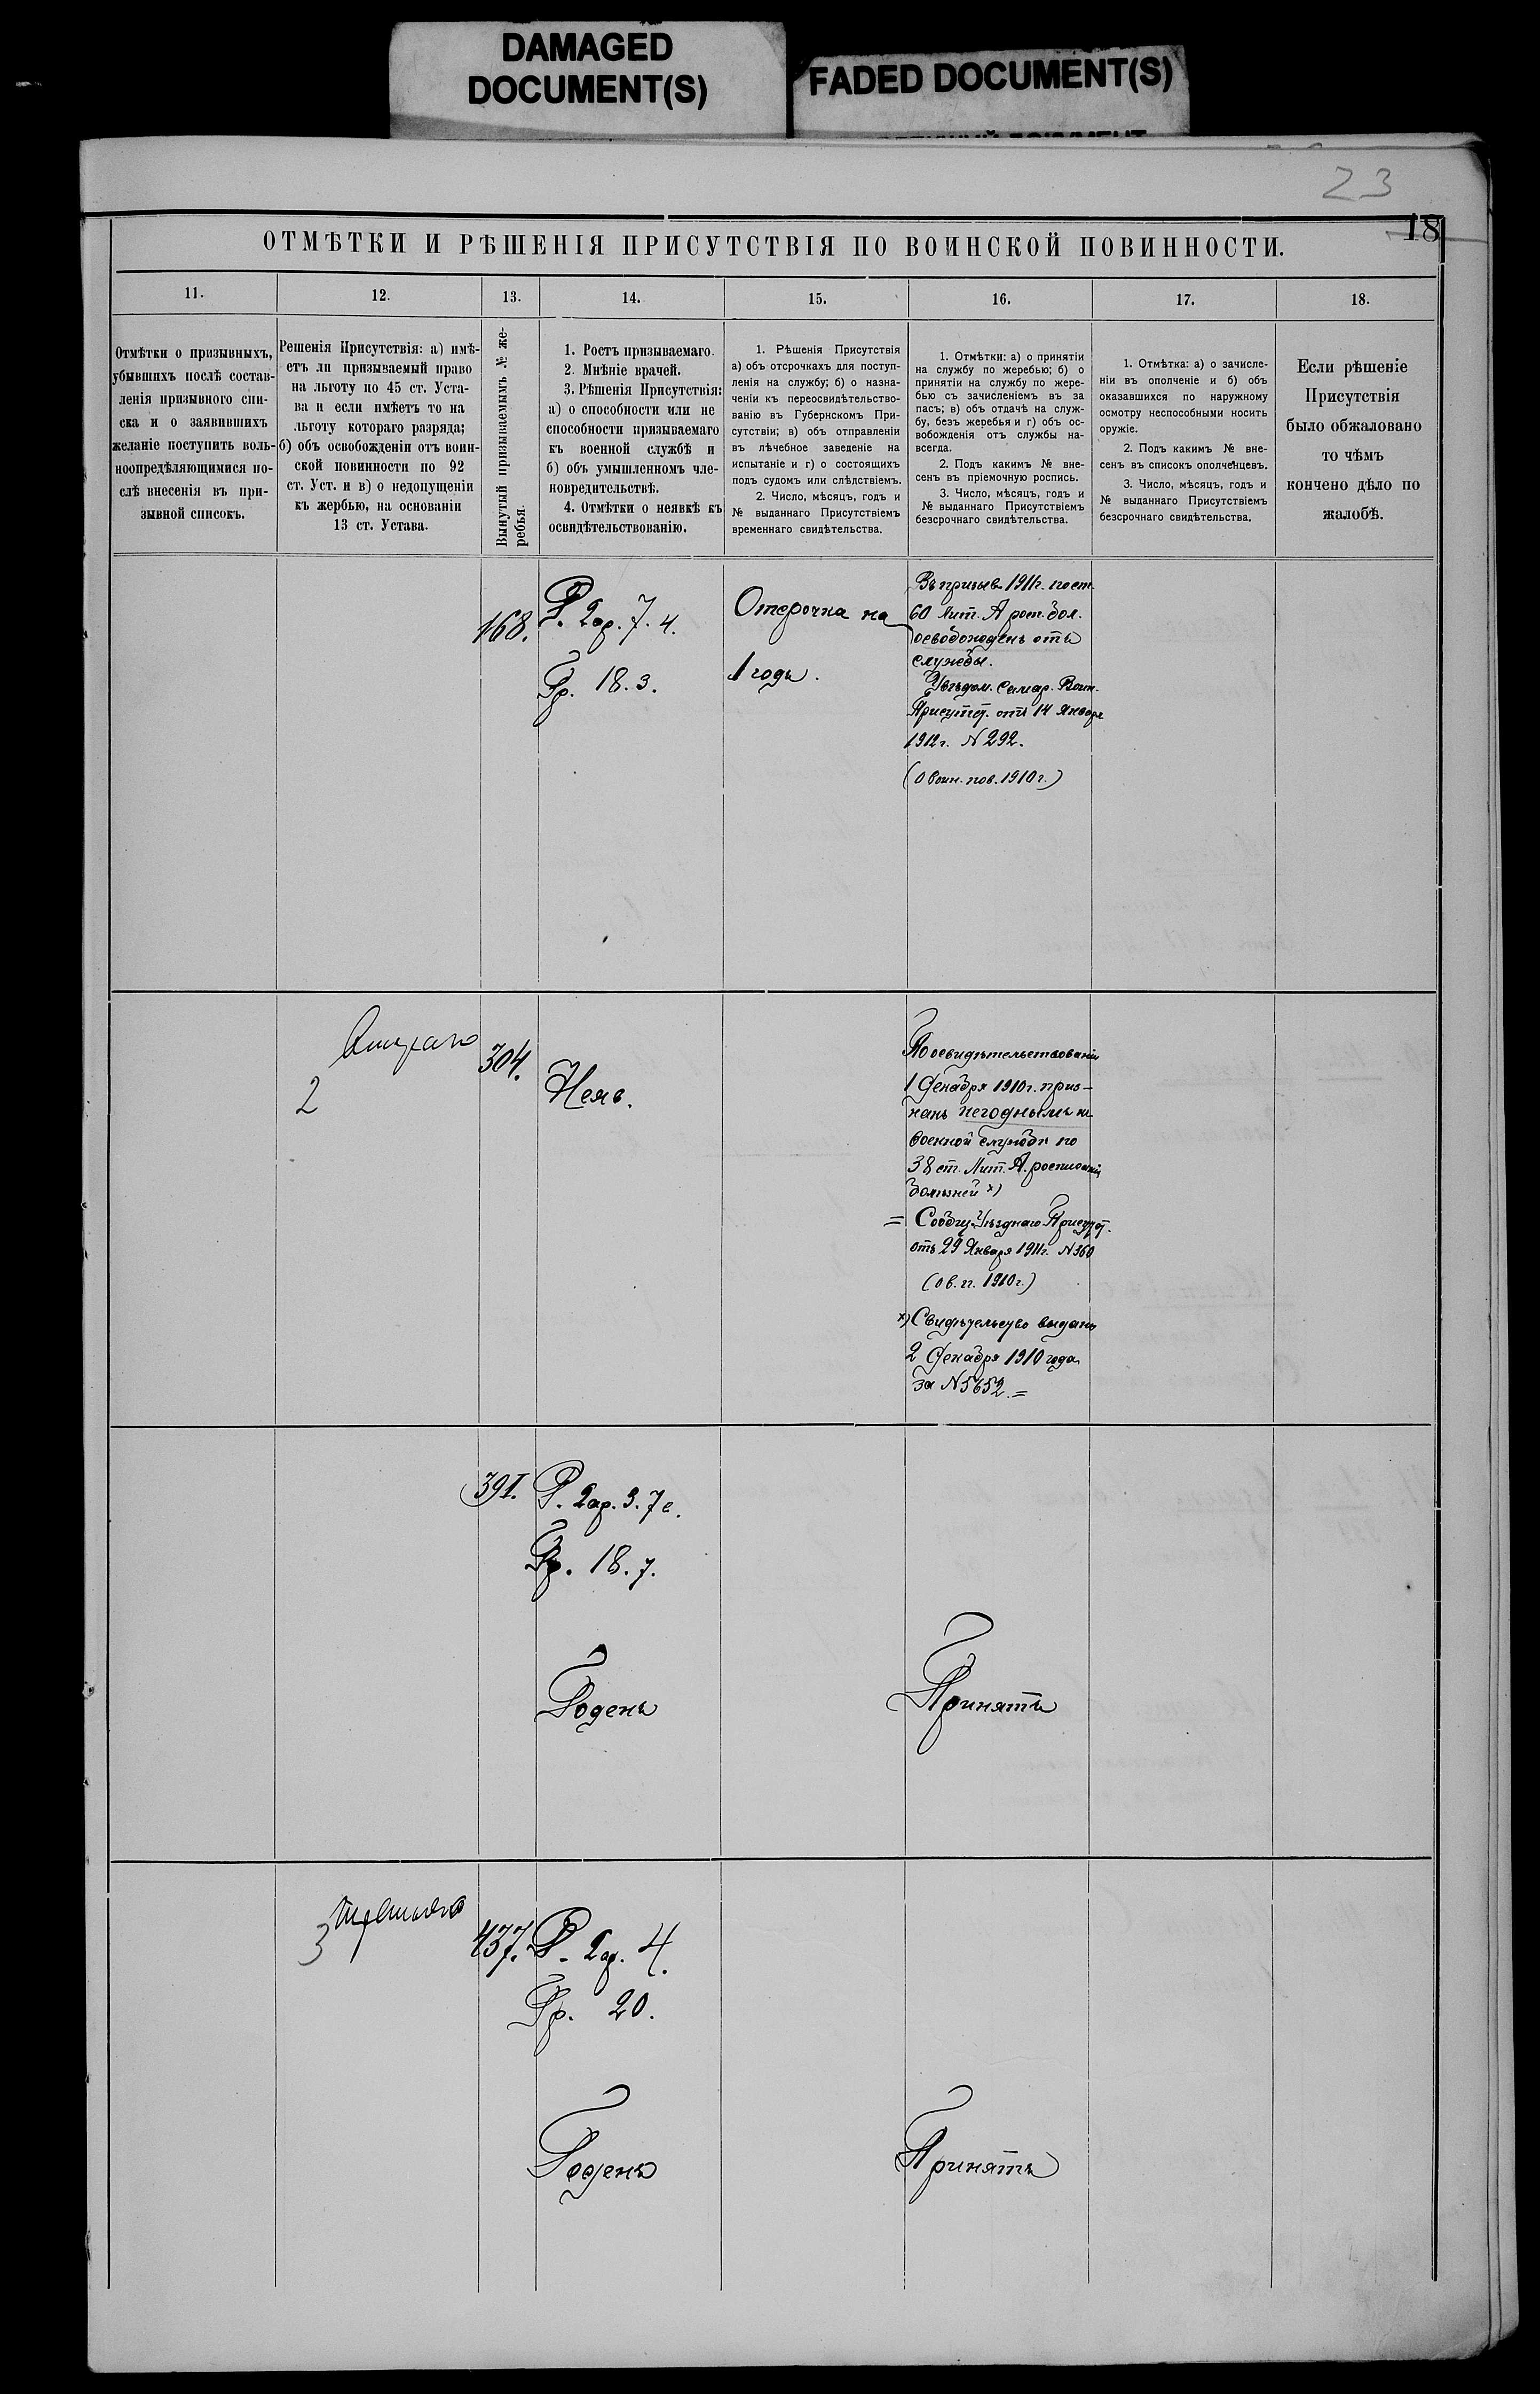 DAMAGED
DOCUMENT(S)
FADED DOCUMENT(S)
23
18
ОТМѢТКИ И РѢШЕНІЯ ПРИСУТСТВІЯ ПО ВОИНСКОЙ ПОВИННОСТИ.
11.
Отмѣтки о призывныхъ,
убывшихъ послѣ состав-
ленія призывного спи-
ска и о заявившихъ
желаніе поступить воль-
ноопредѣляющимися по-
слѣ внесенія въ при-
зывной списокъ.
12.
Решенія Присутствія: а) имѣ-
етъ ли призываемый право
на льготу по 45 ст. Уста-
ва и если имѣетъ то на
льготу котораго разряда;
б) объ освобожденіи отъ воин-
ской повинности по 92
ст. Уст. и в) о недопущеніи
къ жербью, на основаніи
13 ст. Устава.
13.
Вынутый призываемымъ № же-
ребья.
14.
1. Ростъ призываемаго.
2. Мнѣніе врачей.
3. Рѣшенія Присутствія:
а) о способности или не
способности призываемаго
къ военной службѣ и
б) объ умышленномъ чле-
новредительствѣ.
4. Отмѣтки о неявкѣ къ
освидѣтельствованію.
15.
1. Рѣшенія Присутствія
а) объ отсрочкахъ для поступ-
ленія на службу; б) о назна-
ченіи къ переосвидѣтельство-
ванію въ Губернскомъ При-
сутствіи; в) объ отправленіи
въ лѣчебное заведеніе на
испытаніе и г) о состоящихъ
подъ судомъ или слѣдствіемъ.
2. Число, мѣсяцъ, годъ и
№ выданнаго Присутствіемъ
временнаго свидѣтельства.
16.
1. Отмѣтки: а) о принятіи
на службу по жеребью; б) о
принятіи на службу по жере-
бью съ зачисленіемъ въ за
пасъ; в) объ отдачѣ на служ-
бу, безъ жеребья и г) объ ос-
вобожденія отъ службы на-
всегда.
2. Подъ какимъ № вне-
сенъ въ пріемочную роспись.
3. Число, мѣсяцъ, годъ и
№ выданнаго Присутствіемъ
безсрочнаго свидѣтельства.
17.
1. Отмѣтка: а) о зачисле-
ніи въ ополченіе и б) объ
оказавшихся по наружному
осмотру неспособными носить
оружіе.
2. Подъ какимъ № вне-
сенъ въ списокъ ополченцевъ.
3. Число, мѣсяцъ, годъ и
№ выданнаго Присутствіемъ
безсрочнаго свидѣтельства.
18.
Если рѣшеніе
Присутствія
было обжаловано
то чѣмъ
кончено дѣло по
жалобѣ.
168.
Р. 2ар. 7. 4.
Гр. 18. 3.
Отсрочка на
1 годъ.
Въ призывъ 1911г. по ст.
60 Лит. А росп. бол.
освобожденъ отъ
службы.
Увѣдом. Самар. Воин.
Присутст. отъ 14 Января
1912г. N 292.
(О воин. пов. 1910г.)
2
304.
Неяв.
По освидѣтельствованіи
1 Декабря 1910г. приз-
нанъ негоднымъ къ
военной службѣ по
38 ст. Лит. А. росписанія
болѣзней х)
= Сообщ. Уѣзднаго Присутст.
отъ 29 Января 1911г. N 360
(О в. п. 1910г.)
х) Свидѣтельство выдано
2 Декабря 1910 года
за N 5652. =
391.
Р. 2ар. 3. 7е.
Гр. 18. 7.
Годенъ
Принятъ
3
437.
Р. 2ар. 4.
Гр. 20.
Годенъ
Принятъ